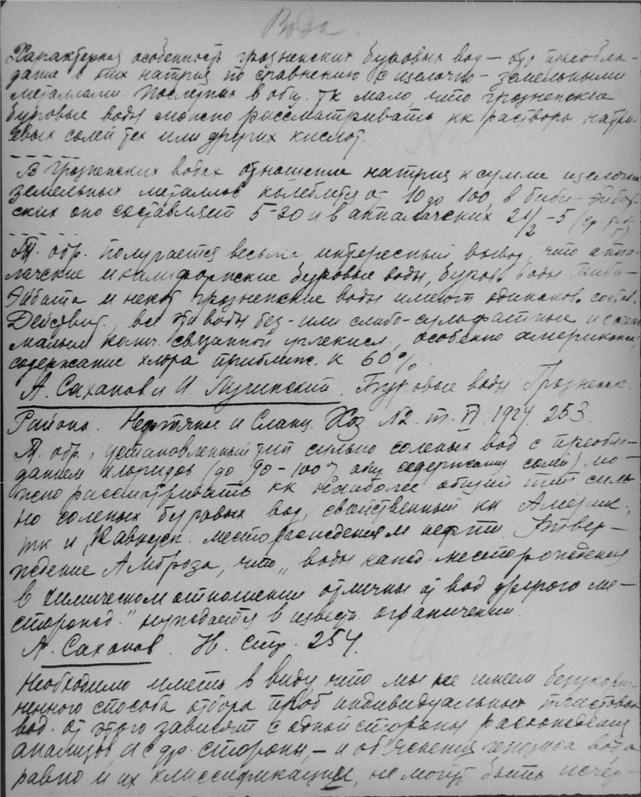 Вода
Характерная особенность грозненских буровых вод — это преобла-
дание в них натрия по сравнению с щелочно-земельными
металлами. Последних в общ. тк мало что грозненские
буровые воды можно рассматривать кк растворы натри-
евых солей тех или других кислот.
В грозненских водах отношение натрия к сумме щелочно
земельных металлов колеблется от 10 до 100, в биби-Эйбат-
ских оно составляет 5-20 и в аппалачских 2 1/2 - 5 (ср
Т. обр. получается весьма интересный вывод, что аппа-
лачские и калифорнские буровые воды, буров. воды Биби-
Эйбата и некот грозненские воды имеют одинаков. состав.
Действит., все эти воды без- или слабо-сульфатные и с очень
малым колич. связанной углекисл., особенно американск
содержание хлора приближ. к 60%.
А. Саханов и И. Лучинский. Буровые воды Грозненск.
Района. Нефтяное и Сланц. Хоз №2. т. VI. 1924. 253.
Т. обр., установленный тип сильно соленых вод с преобла-
данием хлоридов (до 90-100% общ. содержания солей) мо-
жно рассматривать кк наиболее общий тип силь-
но соленых буровых вод, свойственный кк Америк.,
тк и Кавказск. месторождениям нефти. Утвер-
ждение Амброза, что "воды кажд. месторождения
в химическом отношении отличны от вод другого ме-
сторожд." нуждается в известн. ограничении.
А. Саханов. Н. стр. 254.
Необходимо иметь в виду, что мы не имеем безукориз-
ненного способа отбора проб индивидуальных пластовых
вод. От этого зависят с одной стороны расхождения
анализов и с др. стороны, — и объяснения генезиса вод
равно и их классификации, не могут быть исчер-